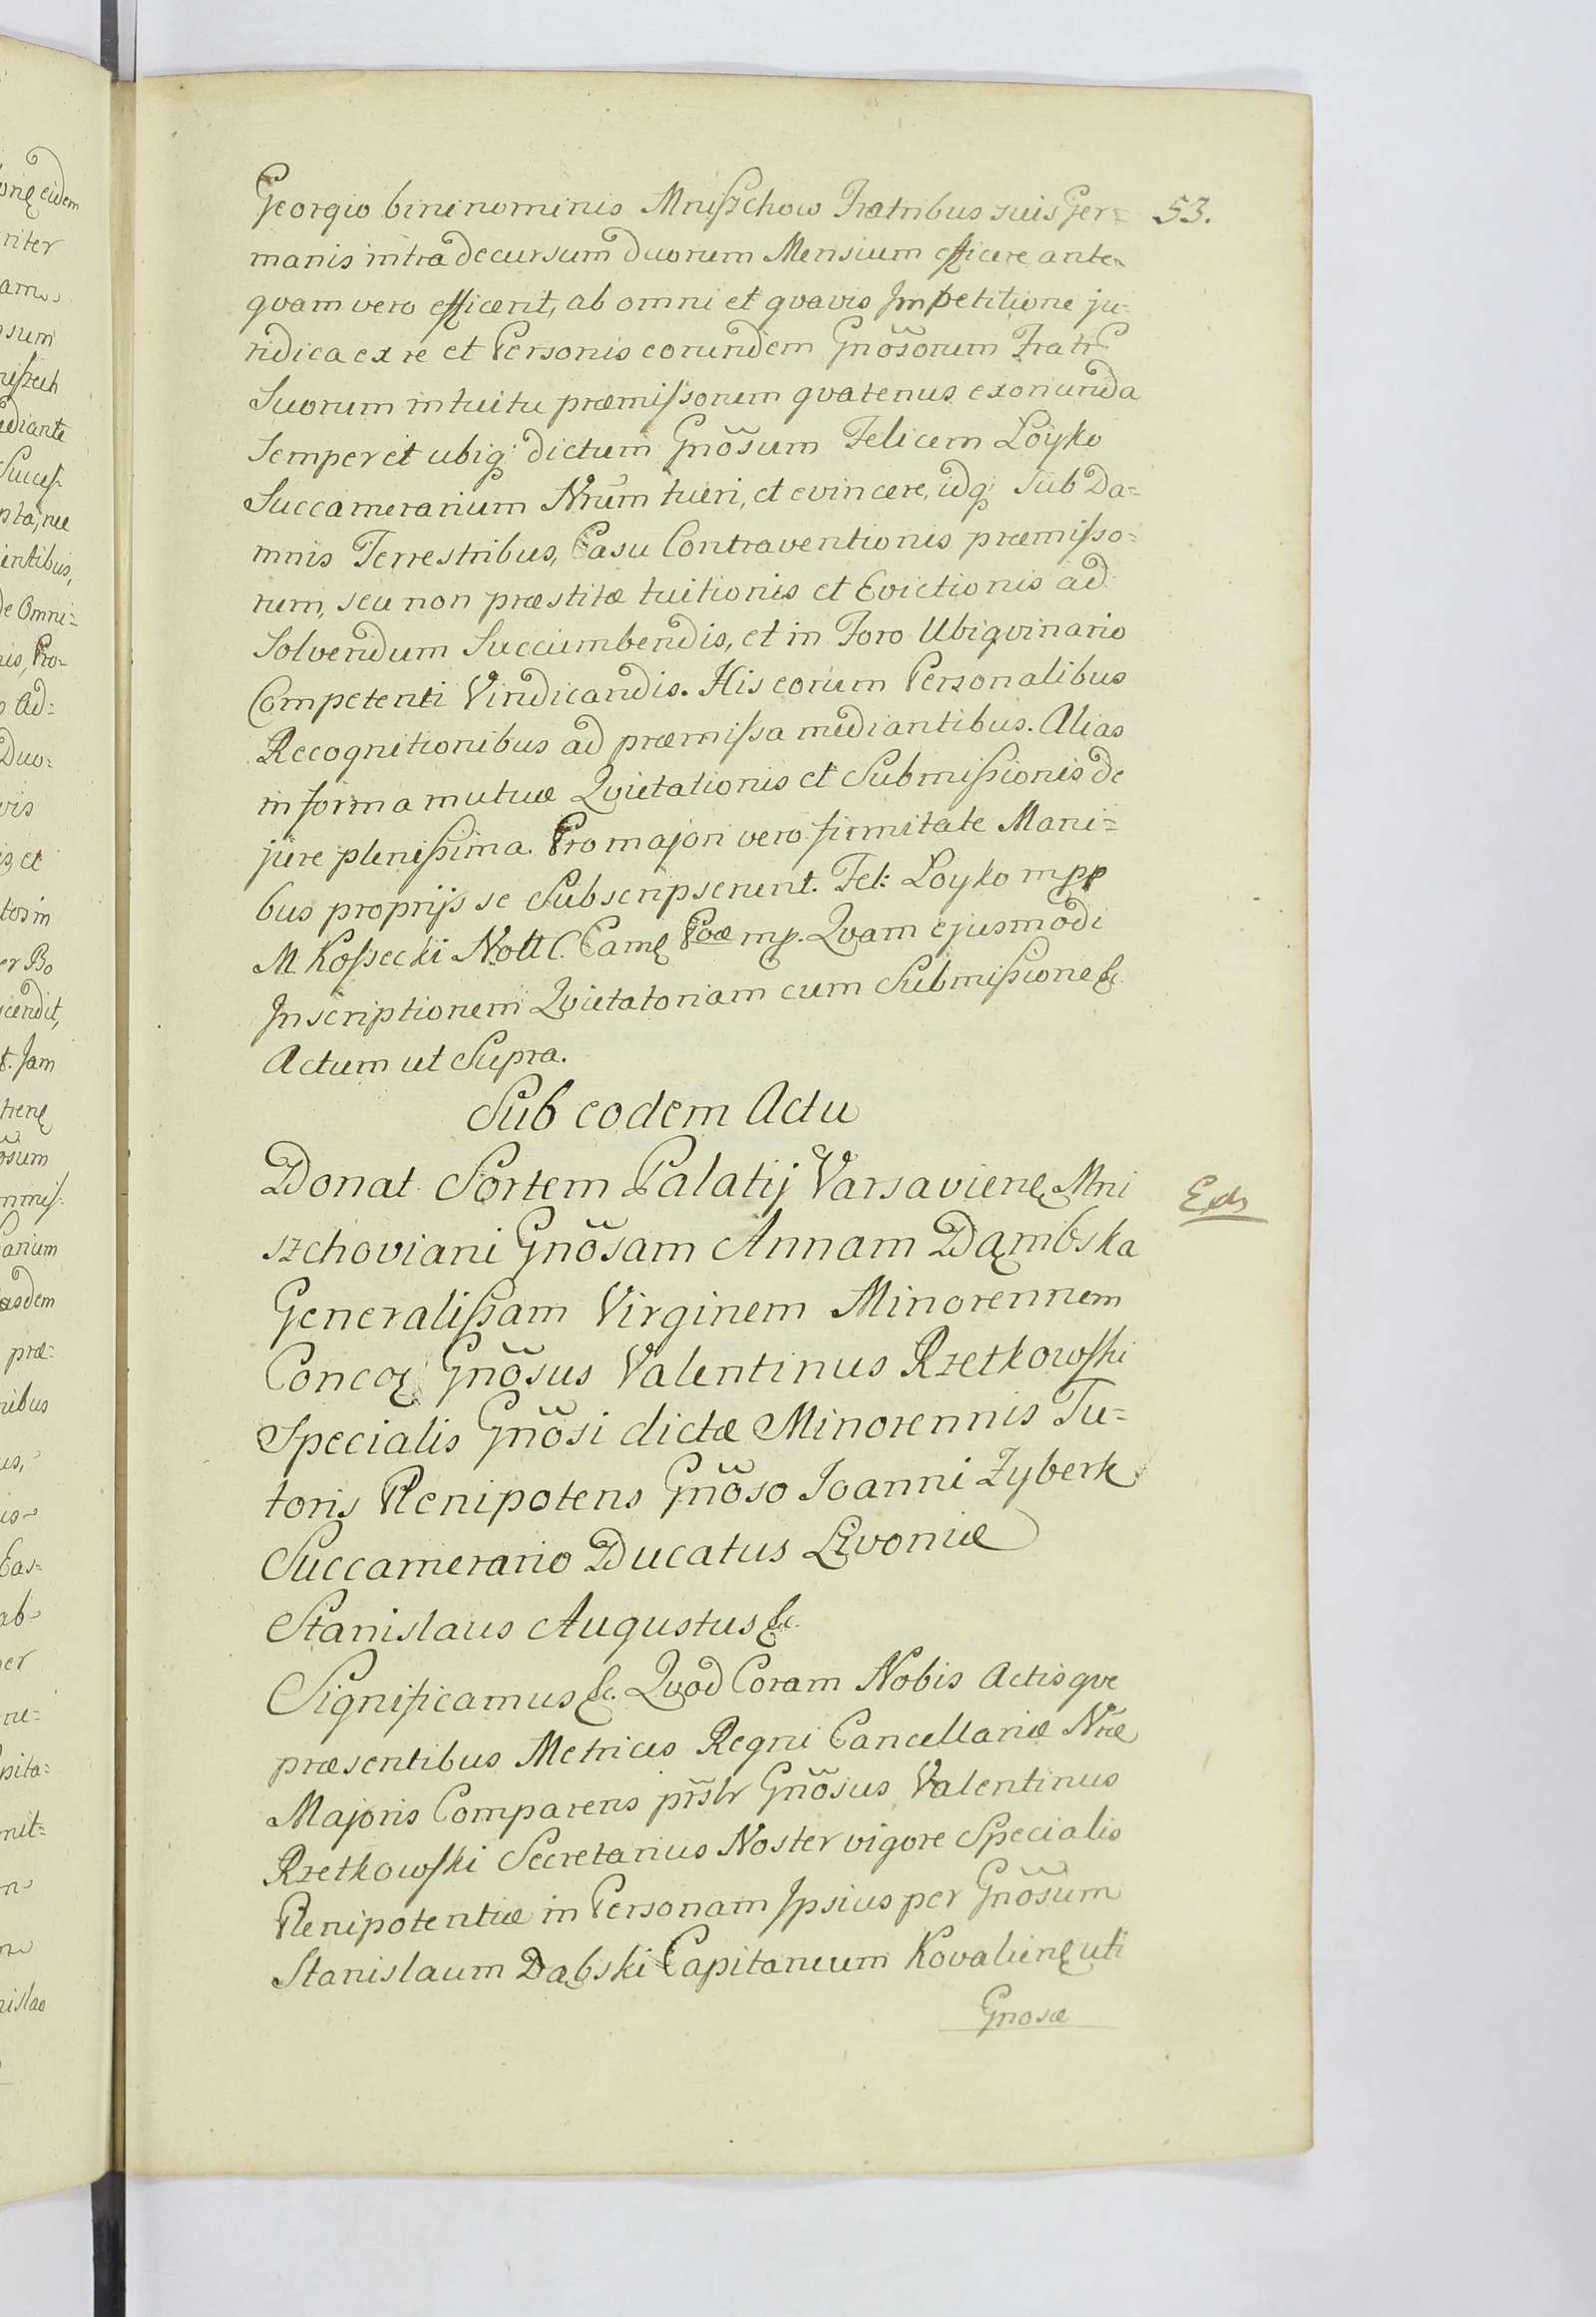 Georgio bini nominis Mniszchow Fratribus suis Ger=
53.
manis intra decursum duorum Mensium efficere ante=
qvam vero efficerit, ab omni et qvavis Impetitione ju=
ridica ex re et Personis eorundem Gnõsorum Fratr
Suorum intuitu præmissorum qvatenus exoriunda
Semper et ubiq; dictum Gnõsum Felicem Loyko
Succamerarium Nrum tueri, et evincere, idq; sub Da=
mnis Terrestribus, Casu Contraventionis præmisso=
rum, seu non præstitæ tuitionis et Evictionis ad
Solvendum Succumbendis, et in Foro Ubiqvinario
Competenti Vindicandis. His eorum Personalibus
Recognitionibus ad præmissa mediantibus. Alias
in forma mutuæ Qvietationis et Submissionis de
jure plenissima. Pro majori vero firmitate Mani=
bus proprijs se Subscripserunt. Fel: Loyko mpp
M. Kossecki Nott C. Camę Poæ mp. Qvam ejusmodi
Inscriptionem Qvietatoriam cum Submissione &c.
Actum ut Supra.
Sub eodem Actu
Donat Sortem Palatij Varsavienę Mni
szchoviani Gnõsam Annam Dąmbska
Exds
Generalissam Virginem Minorennem
Concę Gnõsus Valentinus Rzetkowski
Specialis Gnõsi dictæ Minorennis Tu=
toris Plenipotens Gnõso Joanni Zyberk
Succamerario Ducatus Livoniæ
Stanislaus Augustus &c.
Significamus &c. Qvod Coram Nobis Actisqve
præsentibus Metrices Regni Cancellariæ Nræ
Majoris Comparens prñslr Gnõsus Valentinus
Rzetkowski Secretarius Noster vigore Specialis
Plenipotentiæ in Personam Ipsius per Gnõsum
Stanislaum Dąbski Capitaneum Kovalienę uti
Gnosæ